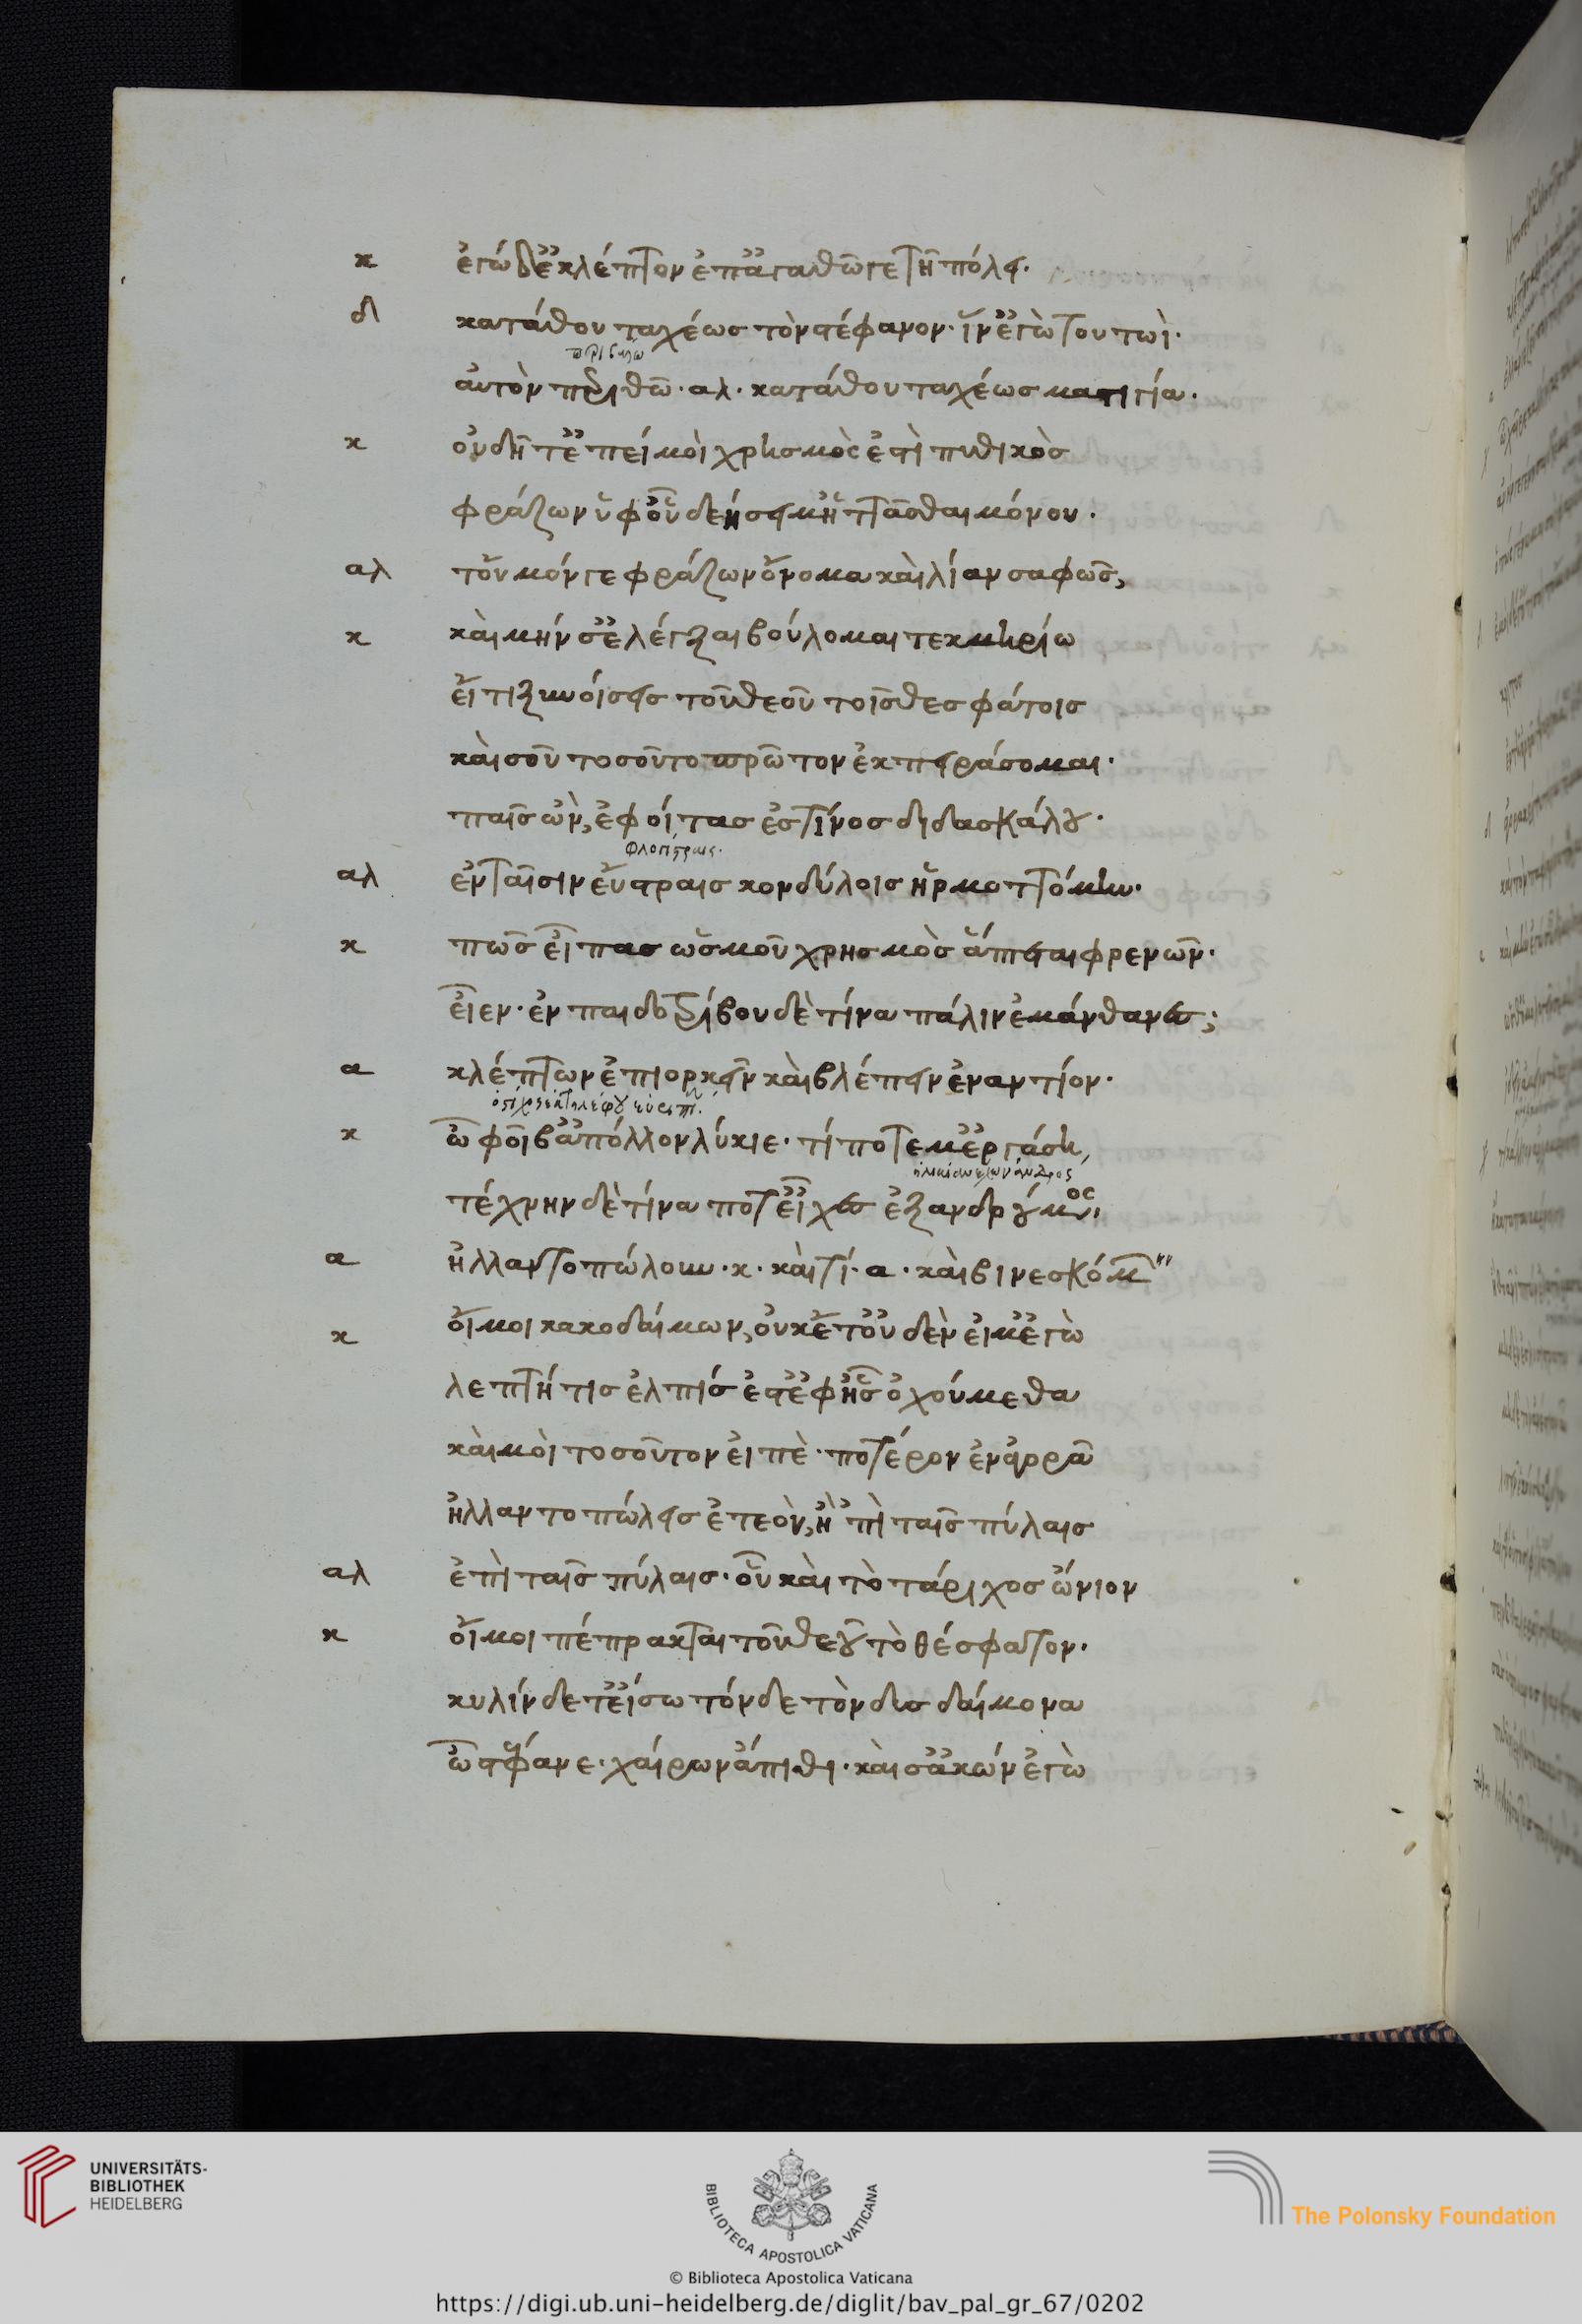 κ ἐγὼ δ' ἔκλεπτον ἐπ' ἀγαθῶ γε τῆ πόλει·
δ κατάθου ταχέως τὸν στέφανον· ἵν' ἐγὼ τουτωὶ·
περιβαλῶ
αὐτὸν περιθῶ· αλ· κατάθου ταχέως μαστιγία·
κ οὐ δῆτ' ἐπεί μοὶ χρησμὸς ἐστὶ πυθικὸς
φράζων ὑφ' οὗ δεήσει μ' ἡττᾶσθαι μόνου·
αλ τοὐμόν γε φράζων ὄνομα καὶ λίαν σαφῶς,
κ καὶ μήν σ' ἐλέγξαι βούλομαι τεκμηρίω
εἴ τι ξυνοίσεις τοῦ θεοῦ τοῖς θεσφάτοις
καὶ σοῦ τοσοῦτο πρῶτον ἐκπειράσομαι·
παῖς ὢν, ἐφοίτας ἐς τίνος διδασκάλου·
φλογίστραις·
αλ ἐν ταῖσιν εὕστραις κονδύλοις ἡρμοττόμην·
κ πῶς εἶπας ὥς μοῦ χρησμὸς ἅπτεται φρενῶν·
εἶεν· ἐν παιδοτρίβου δὲ τίνα πάλην ἐμάνθανες;
α κλέπτων ἐπιορκεῖν καὶ βλέπειν ἐναντίον·
κ ὦ φοῖβ' ἄπολλον λύκιε· τί ποτέ μ' ἐργάση,
τέχνην δὲ τίνα ποτ' εἶχες ἐξανδρούμενος
α ἠλλαντοπώλουν· κ· καὶ τί· α· καὶ βινεσκόμην
κ οἴμοι κακοδαίμων, οὐκέτ' οὐδὲν εἰμ' ἐγὼ
λεπτή τις ἐλπίς ἐστ' ἐφ' ἧς ὀχούμεθα
καὶ μοὶ τοσοῦτον εἰπὲ· πότερον ἐν ἀγορᾶ
ἠλλαντοπώλεις ἐτεὸν, ἢ 'πὶ ταῖς πύλαις
αλ ἐπὶ ταῖς πύλαις· οὗ καὶ τὸ τάριχος ὤνιον
κ οἴμοι πέπρακται τοῦ θεοῦ τὸ θέσφατον·
κυλίνδετ' εἴσω τόνδε τὸν δυσδαίμονα
ὦ στέφανε· χαίρων ἄπιθι· καὶ σ' ἄκων ἐγὼ
UNIVERSITÄTS-
BIBLIOTHEK
HEIDELBERG
BIBLIOTECA APOSTOLICA VATICANA
The Polonsky Foundation
© Biblioteca Apostolica Vaticana
https://digi.ub.uni-heidelberg.de/diglit/bav_pal_gr_67/0202